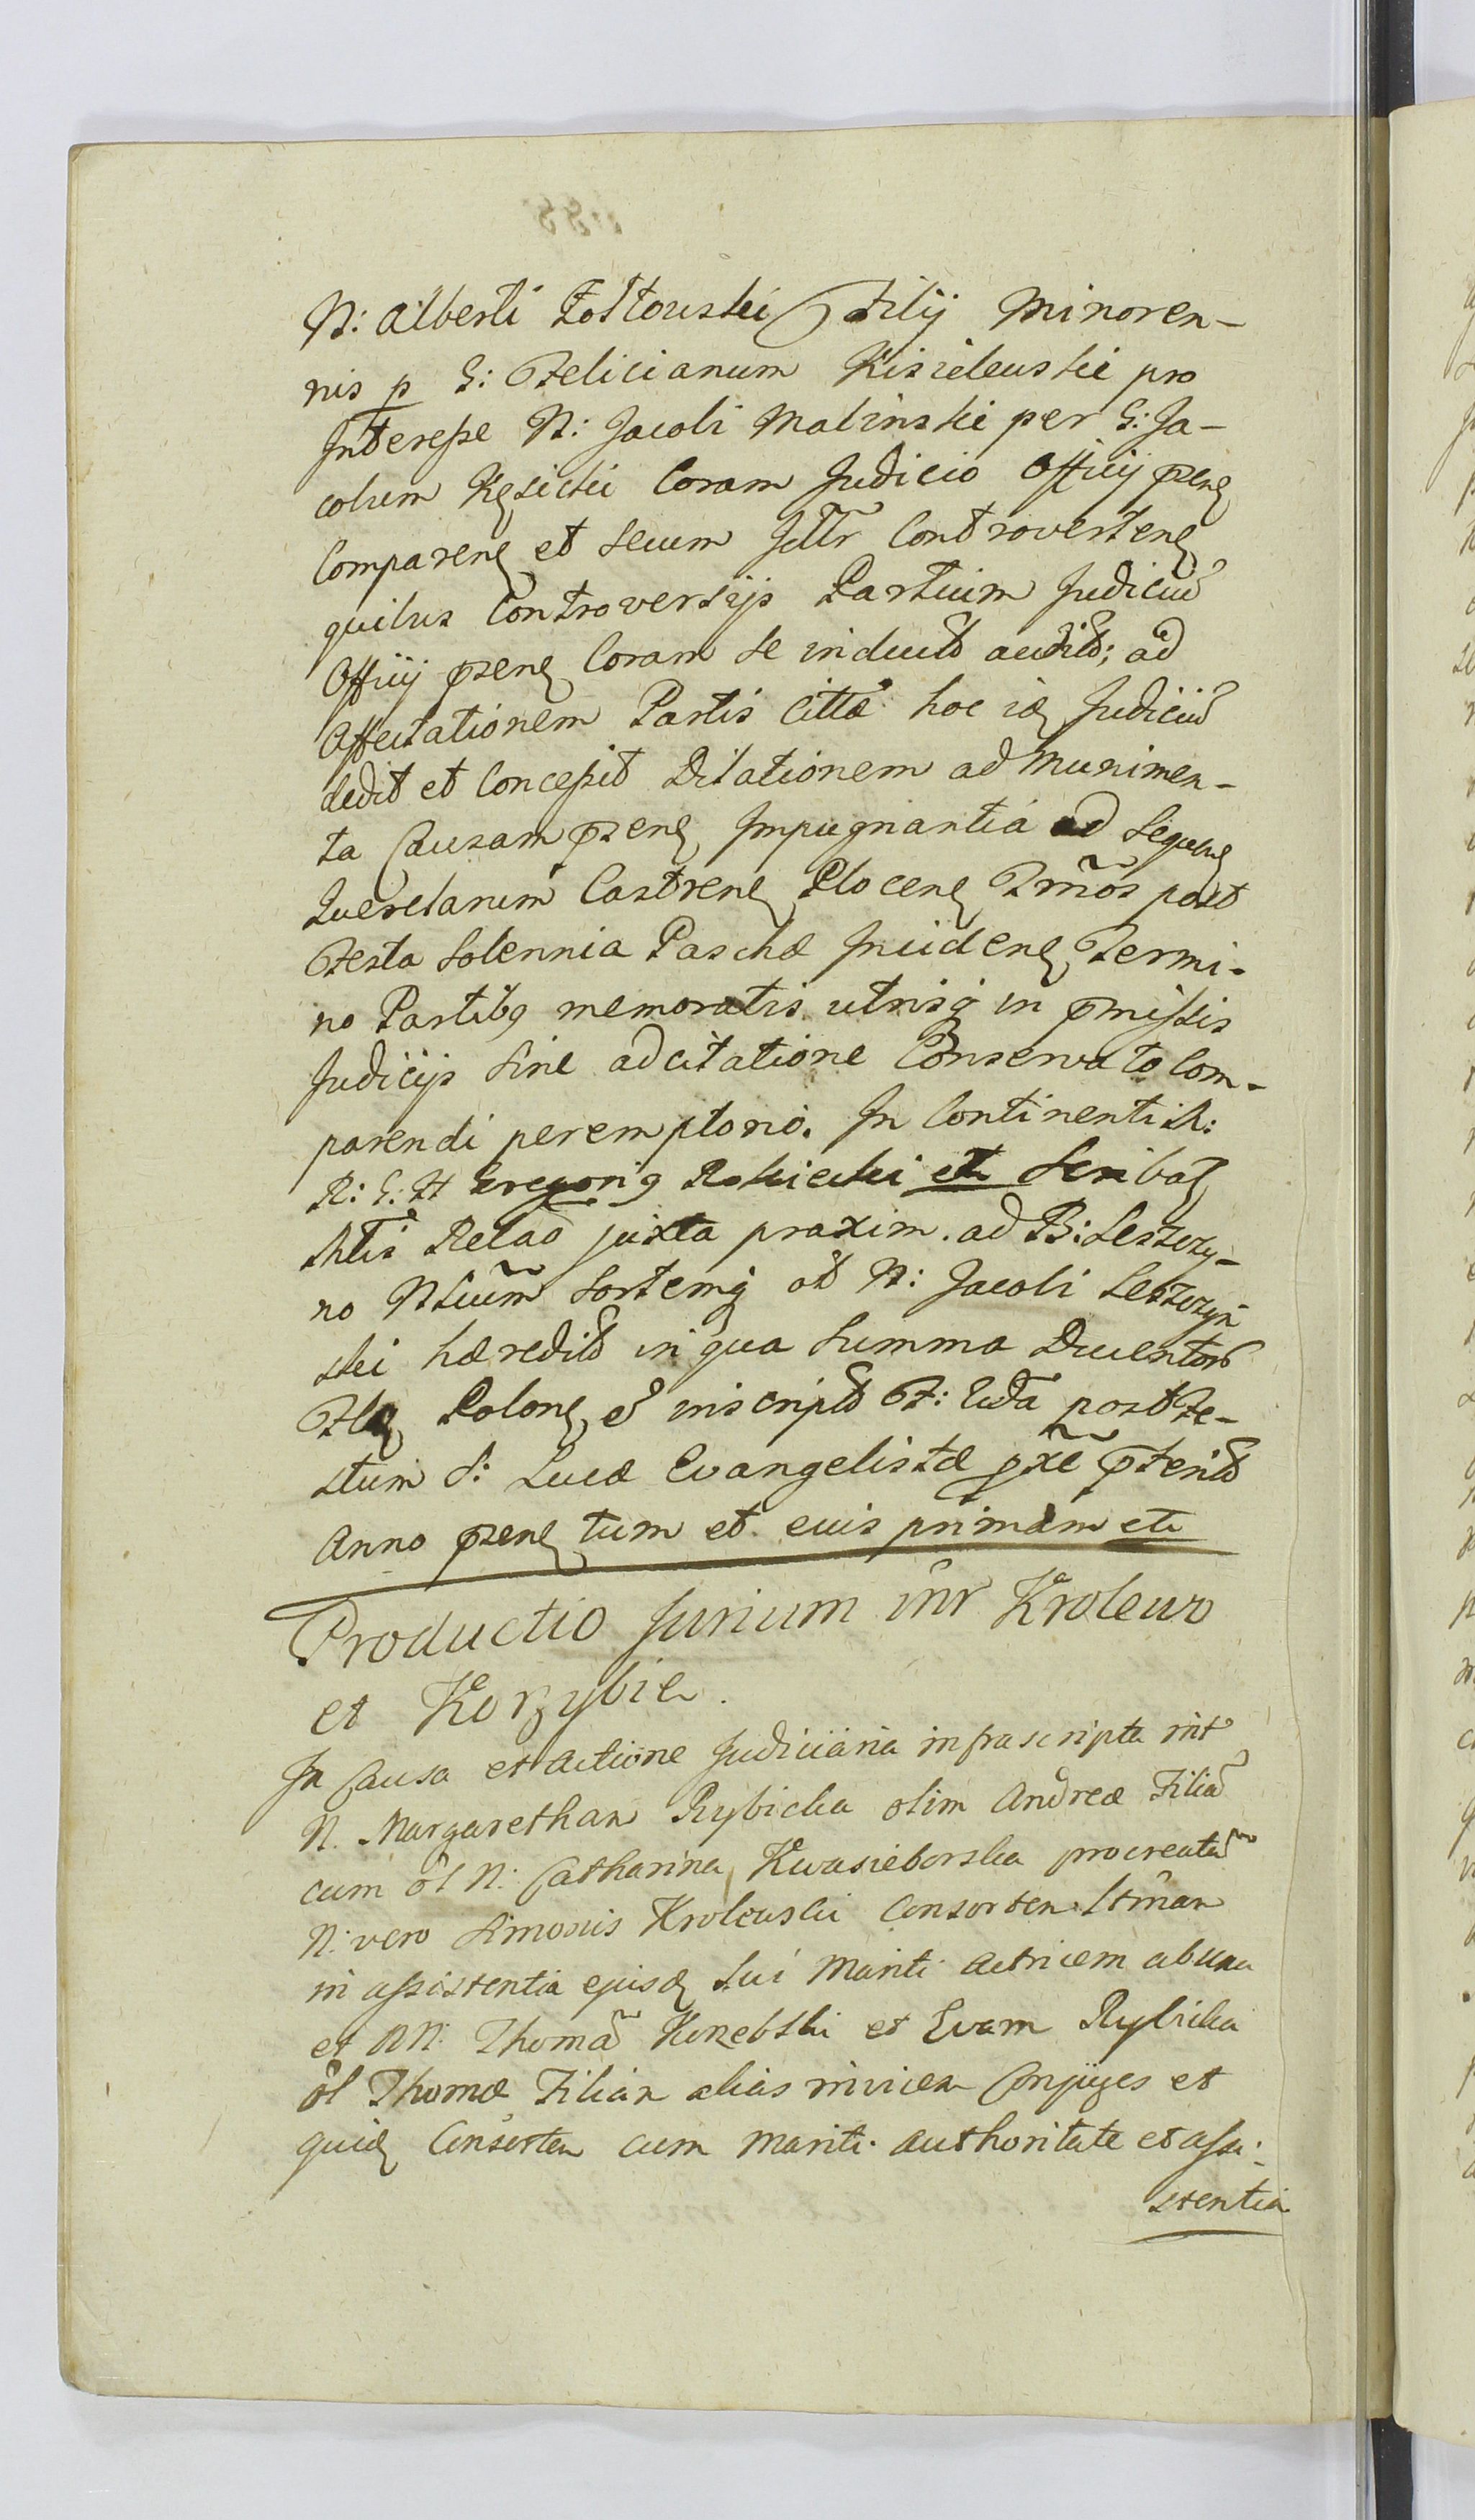 N: Alberti Zołtowski Filij Minoren-
nis p G: Felicianum Kisielewski pro
Interesse N: Jacobi Malinski per G: Ja-
cobum Kęsicki Coram Judicio Officij pñnę
Comparenę et secum Jcttr Controvertenę
quibus Controversijs Partium Judiciũ
Officij pñnę Coram se induct audit; ad
Affectationem Partis Cittæ hoc idę Judiciũ
dedit et Concessit Dilationem ad Munimen-
ta Causam pñnę Impugnantia ad sequenę
Querelarum Castrenę Plocenę Tr̃mos post
Festa Solennia Paschæ Inciden̨ę Termi-
no Partibꝯ memoratis utrisqꝫ in pmissis
Judicijs sine adcitatione Conservato Com-
parendi peremptorio. In Continenti
R: G: H Gregoriꝯ Rokicki et Scribaę
Relaõ juxta praxim. ad B: Leszczy-
no Sortemqꝫ ol N: Jacobi Leszczyń
ski hæredit in qua Summa Ducentorũ
Flę Polonę ẽ inscript F: 2da post Fe-
stum S: Lucæ Evangelistæ pxẽ pterit
Anno pñnę tum et eius primam etc
Productio Jurium inr Krolewo
et Korzybie.
In Causa et actione Judiciaria infrascripta int
N. Margaretham Rybicka olim Andreæ Filiã
cum ol N: Catharina Kwasieborska procreatã
N: vero Simonis Krolewski Consortem ltĩman
in assistentia ejusdę sui Mariti Actricem ab una
et NN: Thomã Kunebski et Evam Rybicka
ol Thomæ Filiam alias invicem Conjuges et
quidę Consortem cum Mariti authoritate et assi-
stentia